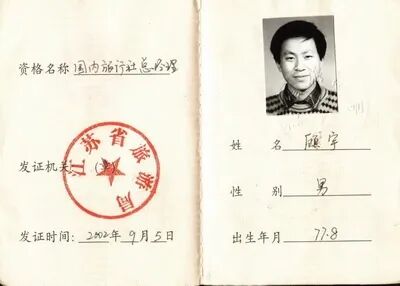 资格名称 国内旅行社总经理
发证机关 (章)
江苏省旅游局
发证时间: 2002年9月5日
姓 名 顾宇
性 别 男
出生年月 77.8